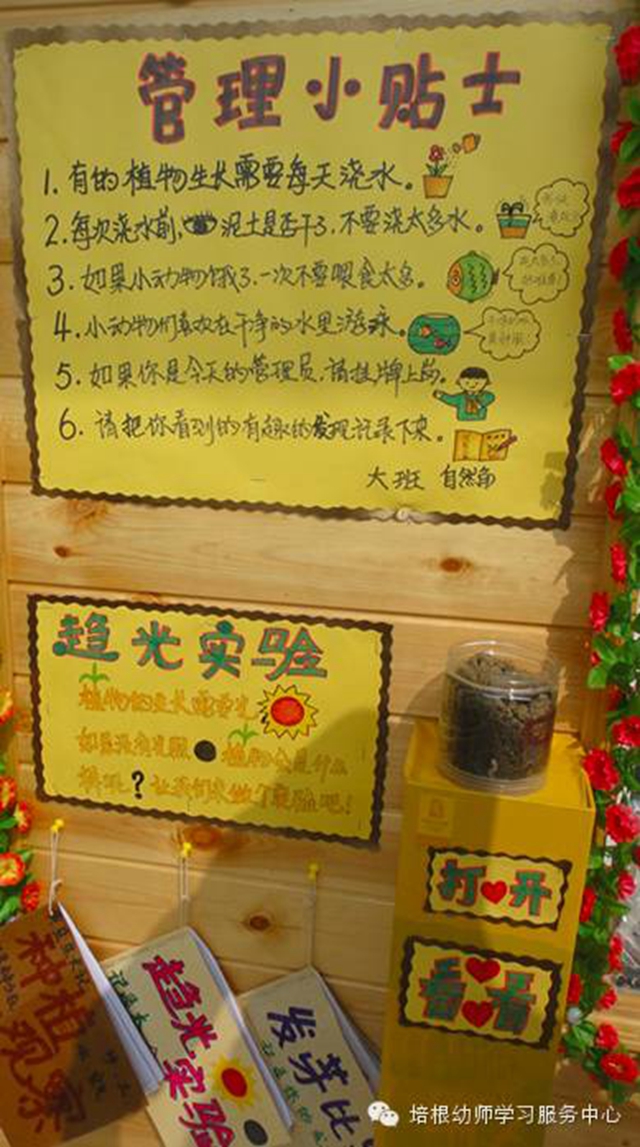 管理小贴士
1. 有的植物生长需要每天浇水。
2. 每次浇水前,泥土是否干了,不要浇太多水。
3. 如果小动物饿了,一次不要喂食太多。
4. 小动物们喜欢在干净的水里游泳。
5. 如果你是今天的管理员,请挂牌上岗。
6. 请把你看到的有趣的发现记录下来。
大班 自然角
趋光实验
植物的生长需要光
如果没有光照 植物会是什么
样呢?让我们来做个实验吧!
打开
看看
种植
观察
趋光实验
发芽比
培根幼师学习服务中心